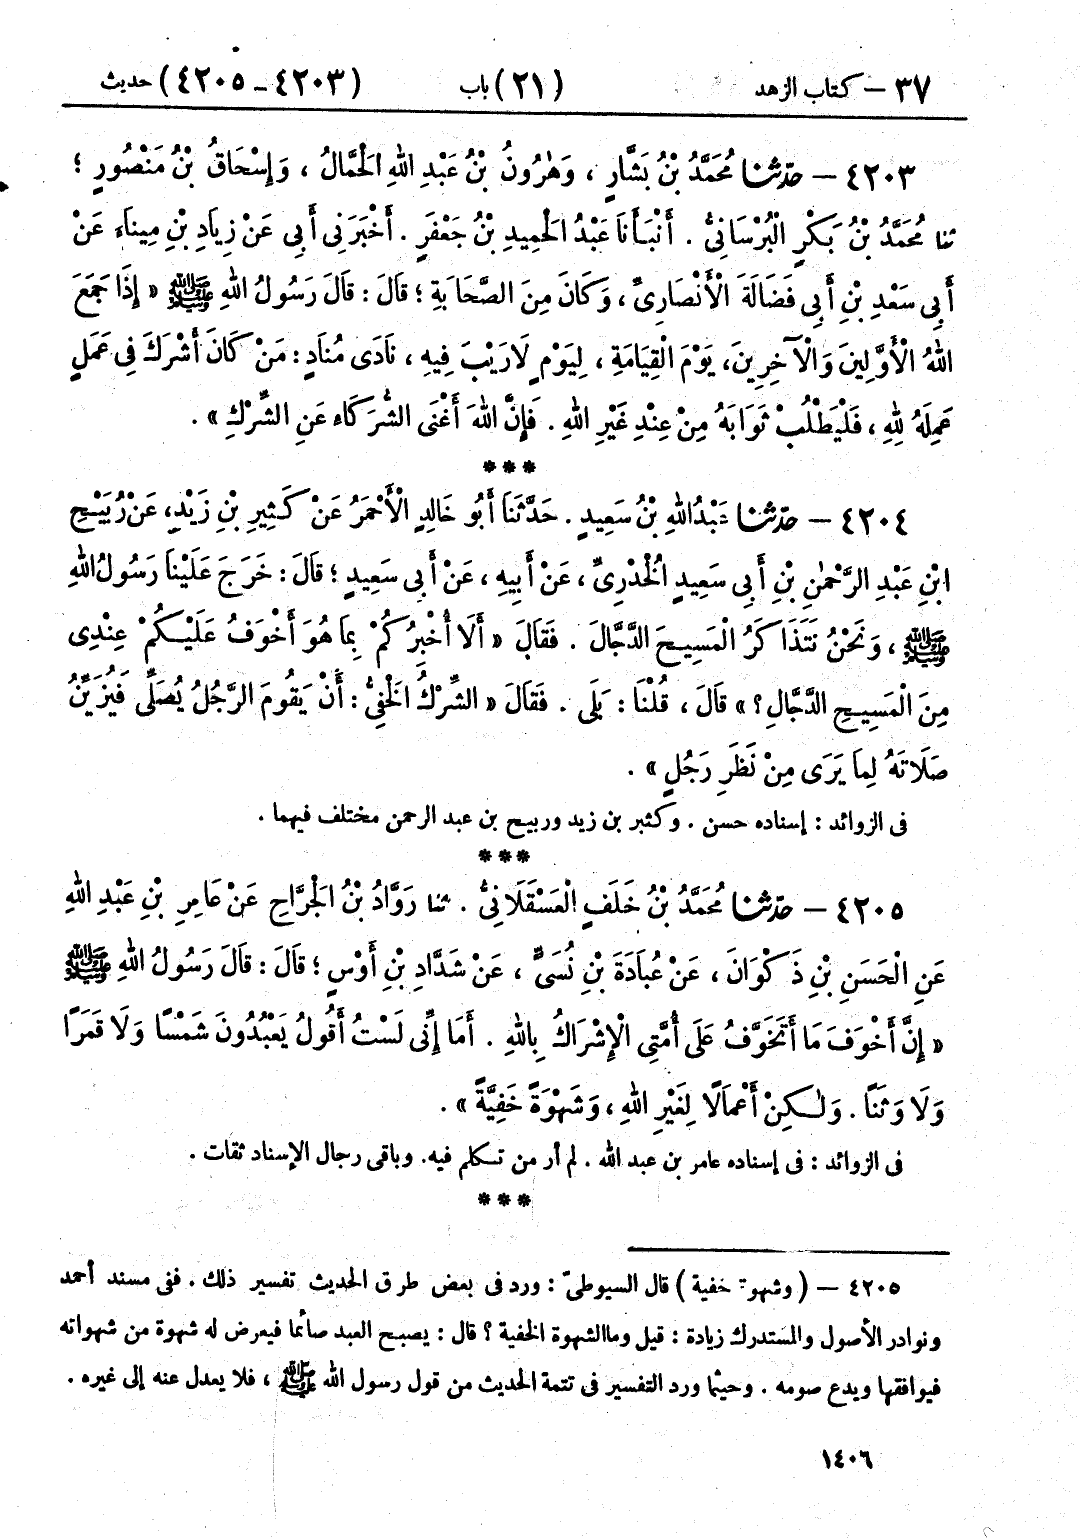 ٣٧ – كتاب الزهد (٢١) باب (٤٢٠٣ – ٤٢٠٥) حديث
٤٢٠٣ – حدّثنا مُحَمَّدُ بْنُ بَشَّارٍ ، وَهٰرُونُ بْنُ عَبْدِ اللهِ الْحَمَّالُ ، وَإِسْحَاقُ بْنُ مَنْصُورٍ ؛
ثنا مُحَمَّدُ بْنُ بَكْرٍ الْبُرْسَانِيُّ . أَنْبَأَنَا عَبْدُ الْحَمِيدِ بْنُ جَعْفَرٍ . أَخْبَرَنِي أَبِي عَنْ زِيَادِ بْنِ مِينَاءَ عَنْ
أَبِي سَعْدِ بْنِ أَبِي فَضَالَةَ الْأَنْصَارِيِّ ، وَكَانَ مِنَ الصَّحَابَةِ ؛ قَالَ : قَالَ رَسُولُ اللهِ ﷺ « إِذَا جَمَعَ
اللهُ الْأَوَّلِينَ وَالْآخِرِينَ، يَوْمَ الْقِيَامَةِ ، لِيَوْمٍ لَارَيْبَ فِيهِ ، نَادَى مُنَادٍ : مَنْ كَانَ أَشْرَكَ فِى عَمَلٍ
عَمِلَهُ لِلهِ ، فَلْيَطْلُبْ ثَوَابَهُ مِنْ عِنْدِ غَيْرِ اللهِ . فَإِنَّ اللهَ أَغْنَى الشُّرَكَاءِ عَنِ الشِّرْكِ » .
***
٤٢٠٤ – حدّثنا عَبْدُاللهِ بْنُ سَعِيدٍ . حَدَّثَنَا أَبُو خَالِدٍ الْأَحْمَرُ عَنْ كَثِيرِ بْنِ زَيْدٍ، عَنْ رُبَيْحِ
ابْنِ عَبْدِ الرَّحْمٰنِ بْنِ أَبِي سَعِيدٍ الْخُدْرِيِّ ، عَنْ أَبِيهِ ، عَنْ أَبِي سَعِيدٍ ؛ قَالَ : خَرَجَ عَلَيْنَا رَسُولُ اللهِ
ﷺ ، وَنَحْنُ نَتَذَاكَرُ الْمَسِيحَ الدَّجَّالَ . فَقَالَ « أَلَا أُخْبِرُكُمْ بِمَا هُوَ أَخْوَفُ عَلَيْكُمْ عِنْدِى
مِنَ الْمَسِيحِ الدَّجَّالِ ؟ » قَالَ ، قُلْنَا : بَلَى . فَقَالَ « الشِّرْكُ الْخَفِيُّ : أَنْ يَقُومَ الرَّجُلُ يُصَلِّى فَيُزَيِّنُ
صَلَاتَهُ لِمَا يَرَى مِنْ نَظَرِ رَجُلٍ » .
فى الزوائد : إسناده حسن . وكثير بن زيد وربيح بن عبد الرحمن مختلف فيهما .
***
٤٢٠٥ – حدّثنا مُحَمَّدُ بْنُ خَلَفٍ الْعَسْقَلَانِيُّ . ثنا رَوَّادُ بْنُ الْجَرَّاحِ عَنْ عَامِرِ بْنِ عَبْدِ اللهِ
عَنِ الْحَسَنِ بْنِ ذَكْوَانَ ، عَنْ عُبَادَةَ بْنِ نُسَيٍّ ، عَنْ شَدَّادِ بْنِ أَوْسٍ ؛ قَالَ : قَالَ رَسُولُ اللهِ ﷺ
« إِنَّ أَخْوَفَ مَا أَتَخَوَّفُ عَلَى أُمَّتِى الْإِشْرَاكُ بِاللهِ . أَمَا إِنِّى لَسْتُ أَقُولُ يَعْبُدُونَ شَمْسًا وَلَا قَمَرًا
وَلَا وَثَنًا . وَلٰكِنْ أَعْمَالًا لِغَيْرِ اللهِ ، وَشَهْوَةً خَفِيَّةً » .
فى الزوائد : فى إسناده عامر بن عبد الله . لم أر من تكلم فيه. وباقى رجال الإسناد ثقات .
***
٤٢٠٥ – ( وشهوة خفية ) قال السيوطىّ : ورد فى بعض طرق الحديث تفسير ذلك . ففى مسند أحمد
ونوادر الأصول والمستدرك زيادة : قيل وما الشهوة الخفية ؟ قال : يصبح العبد صائما فيعرض له شهوة من شهواته
فيوافقها ويدع صومه . وحيثما ورد التفسير فى تتمة الحديث من قول رسول الله ﷺ ، فلا يعدل عنه إلى غيره .
١٤٠٦